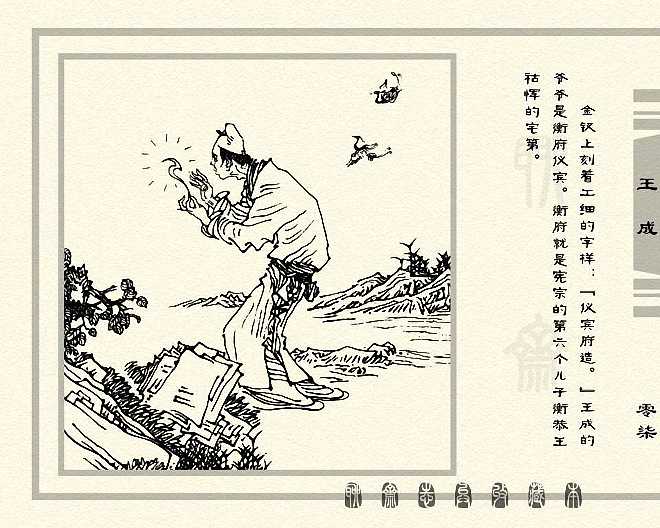 金钗上刻着工细的字样：「仪宾府造。」王成的
爷爷是衡府仪宾。衡府就是宪宗的第六个儿子衡恭王
祜恽的宅第。
王成
零柒